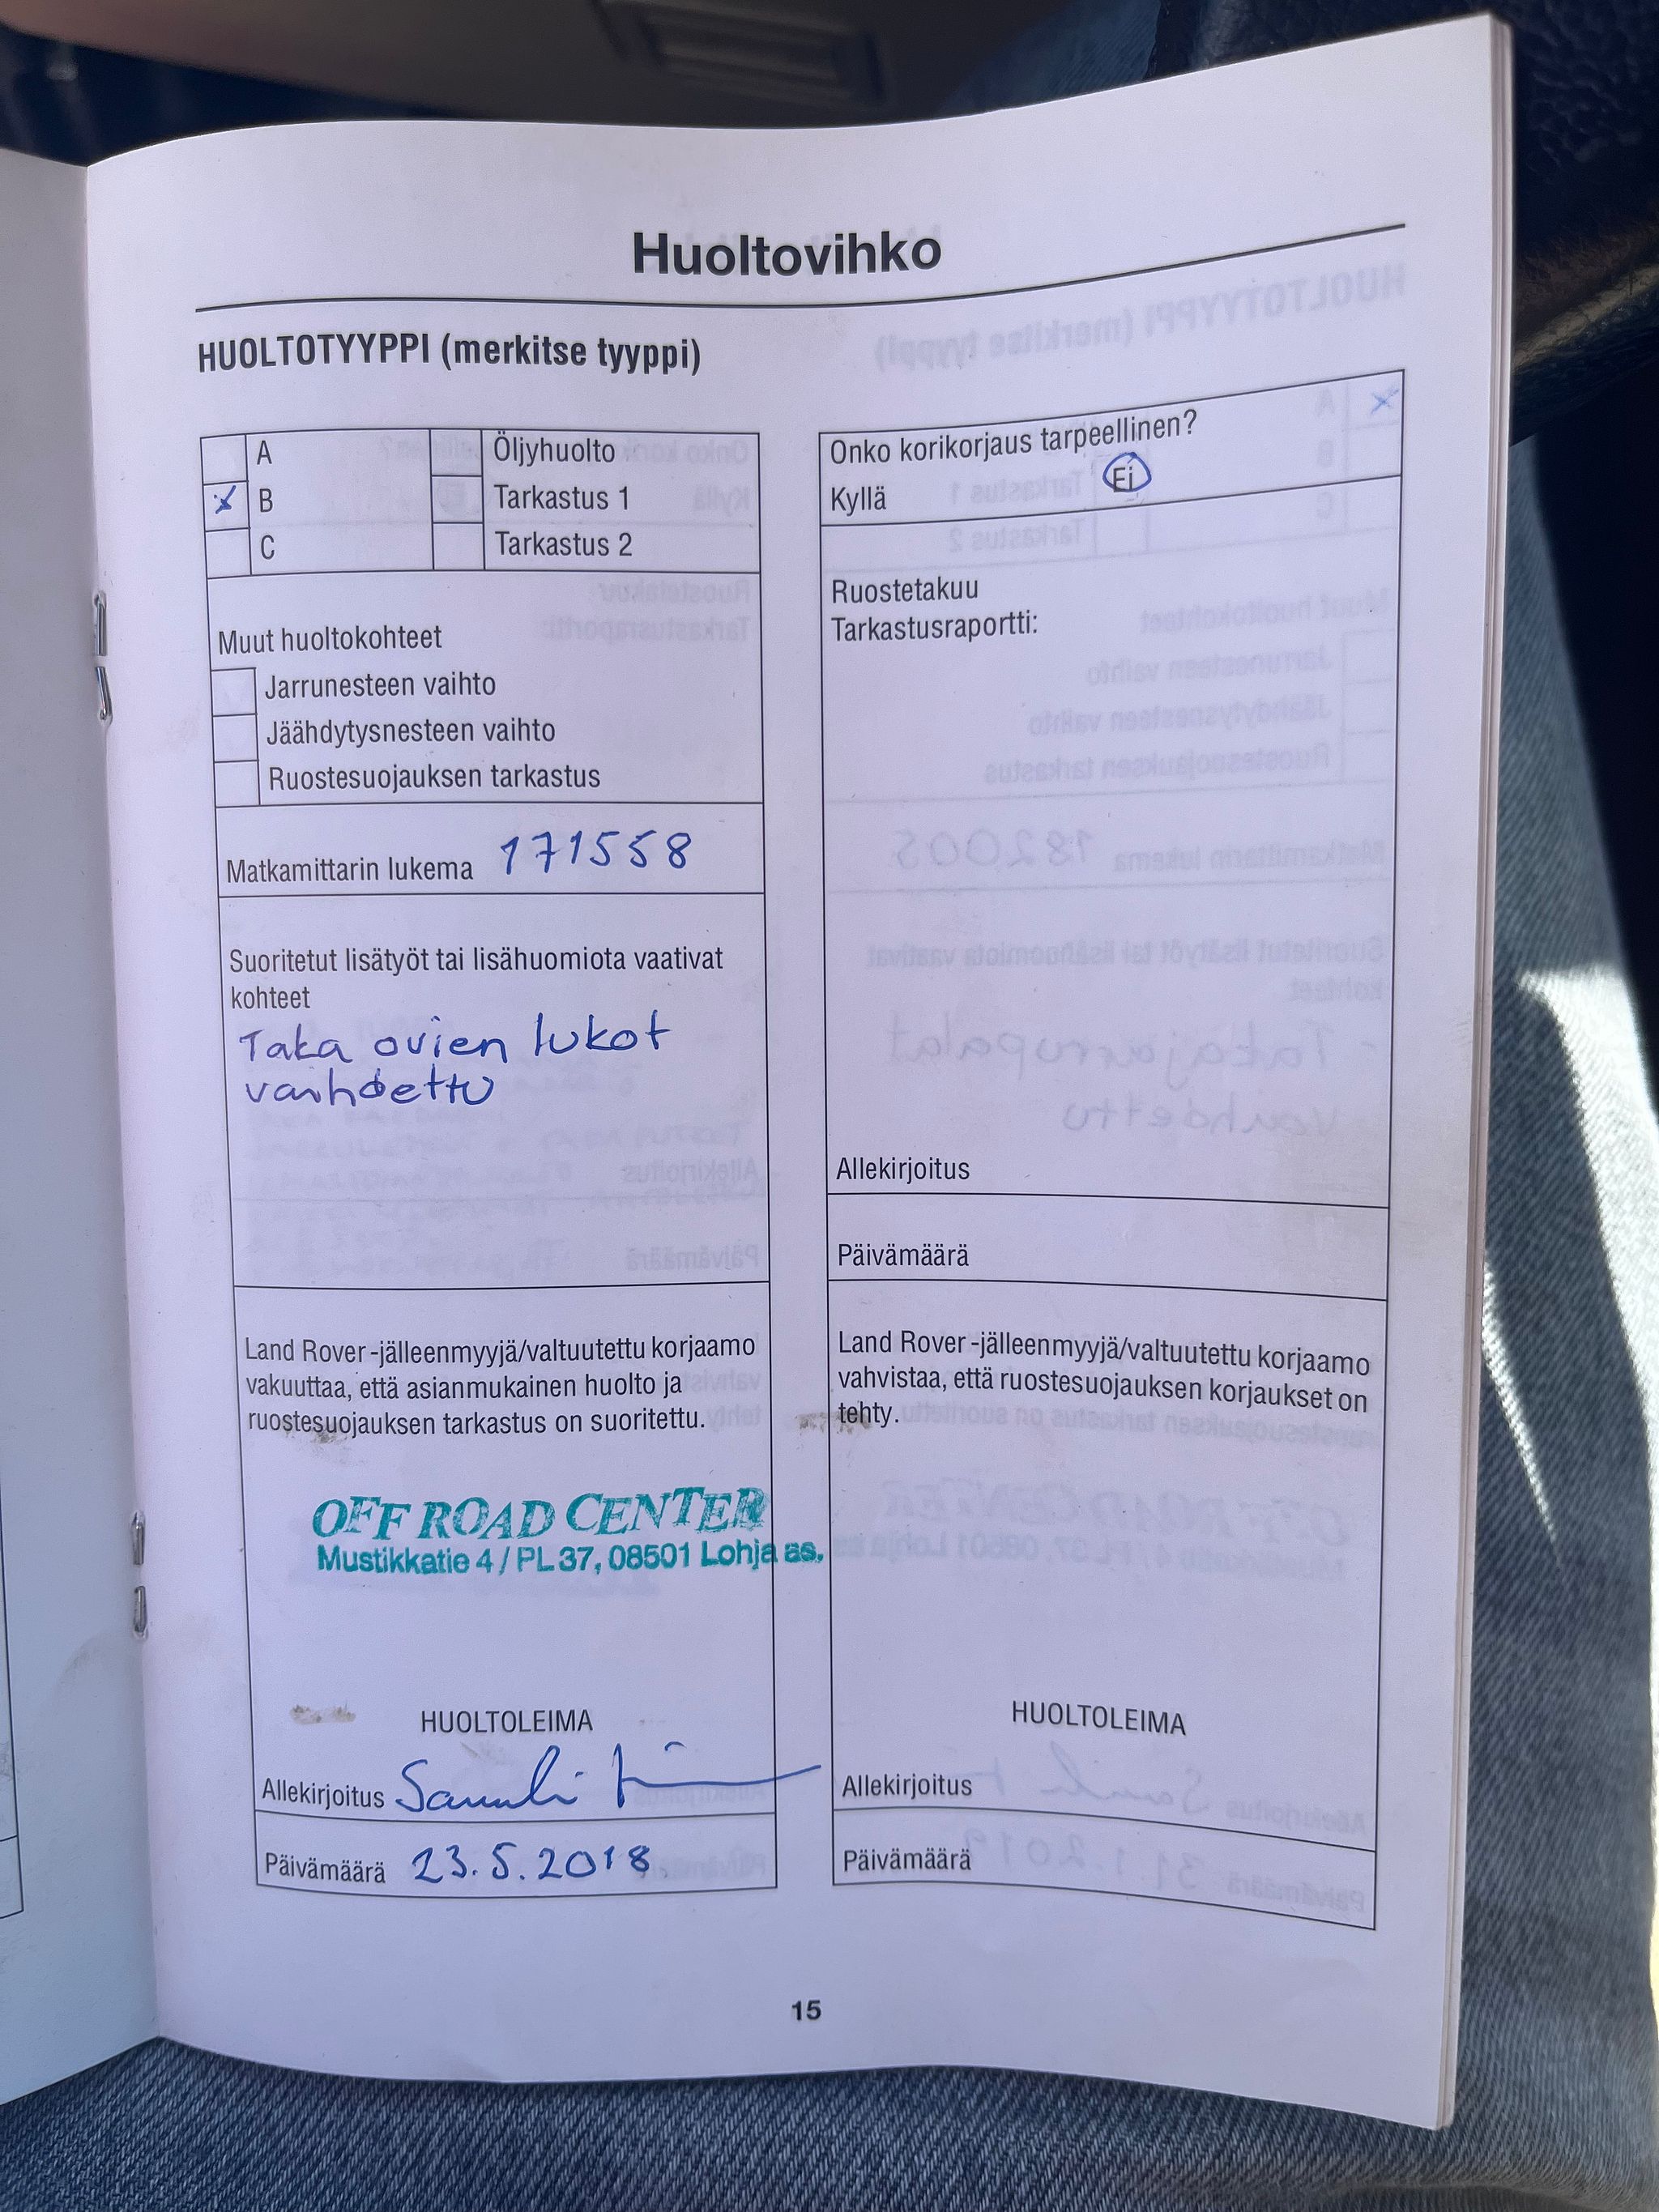 Huoltovihko
HUOLTOTYYPPI (merkitse tyyppi)
A
Öljyhuolto
B
Tarkastus 1
C
Tarkastus 2
Muut huoltokohteet
Jarrunesteen vaihto
Jäähdytysnesteen vaihto
Ruostesuojauksen tarkastus
Matkamittarin lukema 171558
Suoritetut lisätyöt tai lisähuomiota vaativat
kohteet
Taka ovien lukot
vaihdettu
Land Rover -jälleenmyyjä/valtuutettu korjaamo
vakuuttaa, että asianmukainen huolto ja
ruostesuojauksen tarkastus on suoritettu.
OFF ROAD CENTER
Mustikkatie 4 / PL 37, 08501 Lohja as.
HUOLTOLEIMA
Allekirjoitus
Päivämäärä 23.5.2018
Onko korikorjaus tarpeellinen?
Kyllä Ei
Ruostetakuu
Tarkastusraportti:
Allekirjoitus
Päivämäärä
Land Rover -jälleenmyyjä/valtuutettu korjaamo
vahvistaa, että ruostesuojauksen korjaukset on
tehty.
HUOLTOLEIMA
Allekirjoitus
Päivämäärä
15